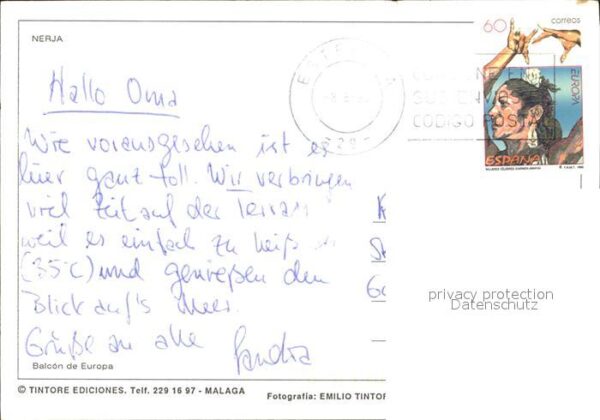 NERJA
60
correos
EUROPA
CODIGO POSTAL
ESPAÑA
Hallo Oma
Wie vorausgesehen ist es
hier ganz toll. Wir verbringen
viel Zeit auf der Terrasse
weil es einfach zu heiß ist
(35°C) und genießen den
Blick auf's Meer.
Grüße an alle Sandra
privacy protection
Datenschutz
Balcón de Europa
© TINTORE EDICIONES. Telf. 229 16 97 - MALAGA
Fotografía: EMILIO TINTOR